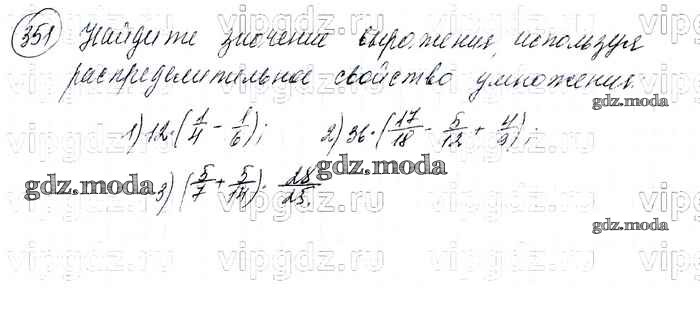 351 Найдите значение выражения, используя
распределительное свойство умножения.
1) 12·(1/4 - 1/6); 2) 36·(17/18 - 5/12 + 4/9);
3) (5/7 + 5/14) · 28/25.
gdz.moda
gdz.moda
gdz.moda
vipgdz.ru vipgdz.ru vipgdz.ru
vipgdz.ru vipgdz.ru vipgdz.ru
vipgdz.ru vipgdz.ru vipgdz.ru
vipgdz.ru vipgdz.ru vipgdz.ru